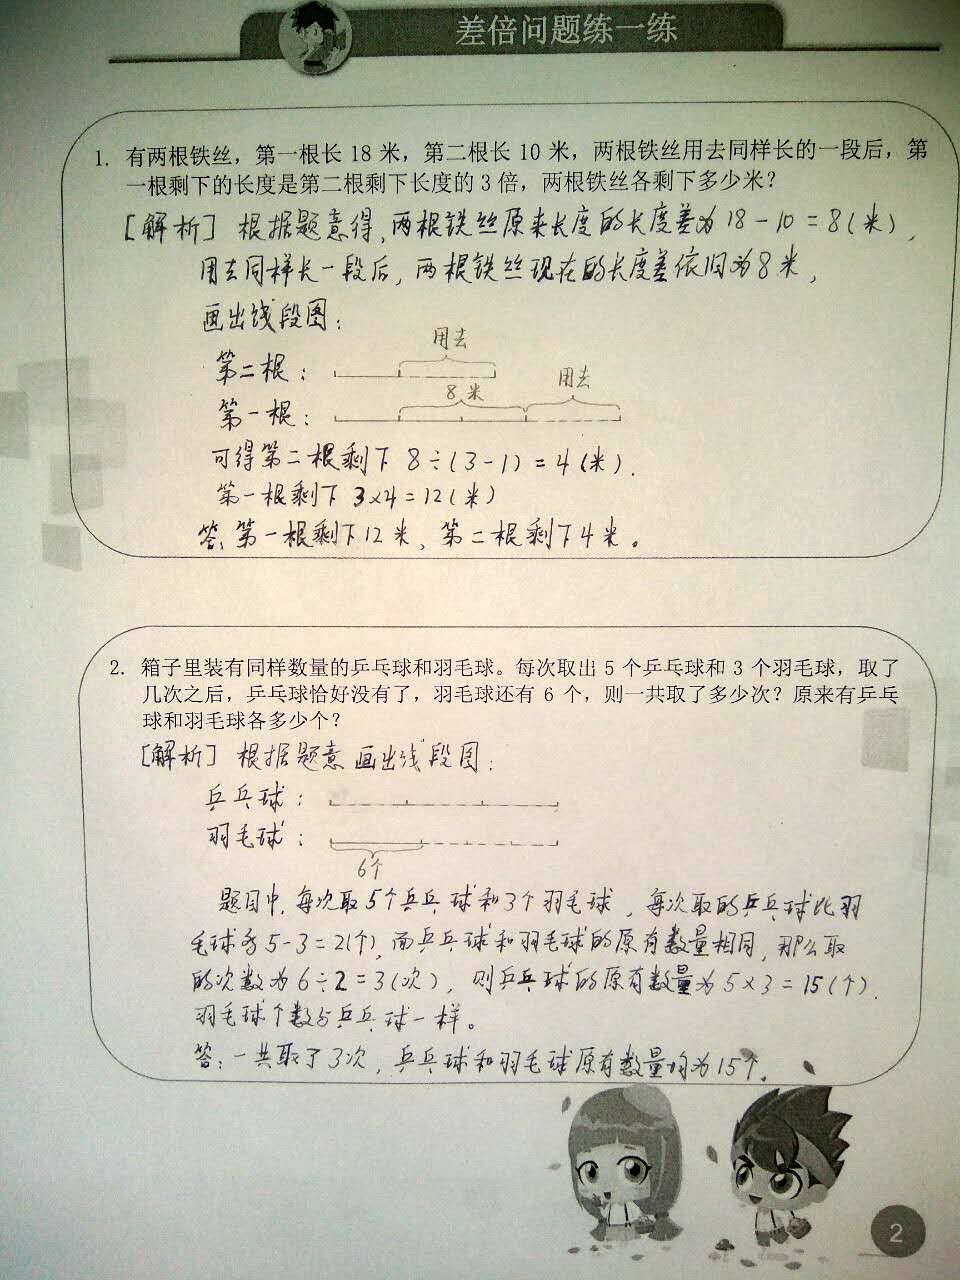 差倍问题练一练
1. 有两根铁丝，第一根长 18 米，第二根长 10 米，两根铁丝用去同样长的一段后，第
一根剩下的长度是第二根剩下长度的 3 倍，两根铁丝各剩下多少米？
[解析] 根据题意得，两根铁丝原来长度的长度差为 18－10＝8(米)，
用去同样长一段后，两根铁丝现在的长度差依旧为8米，
画出线段图：
用去
第二根：
8米 用去
第一根：
可得第二根剩下 8÷(3-1)＝4(米).
第一根剩下 3×4＝12(米)
答：第一根剩下12米，第二根剩下4米。
2. 箱子里装有同样数量的乒乓球和羽毛球。每次取出 5 个乒乓球和 3 个羽毛球，取了
几次之后，乒乓球恰好没有了，羽毛球还有 6 个，则一共取了多少次？原来有乒乓
球和羽毛球各多少个？
[解析] 根据题意画出线段图：
乒乓球：
羽毛球：
6个
题目中，每次取5个乒乓球和3个羽毛球，每次取的乒乓球比羽
毛球多5-3＝2(个)，而乒乓球和羽毛球的原有数量相同，那么取
的次数为6÷2＝3(次)，则乒乓球的原有数量为5×3＝15(个).
羽毛球个数与乒乓球一样。
答：一共取了3次，乒乓球和羽毛球原有数量均为15个.
2